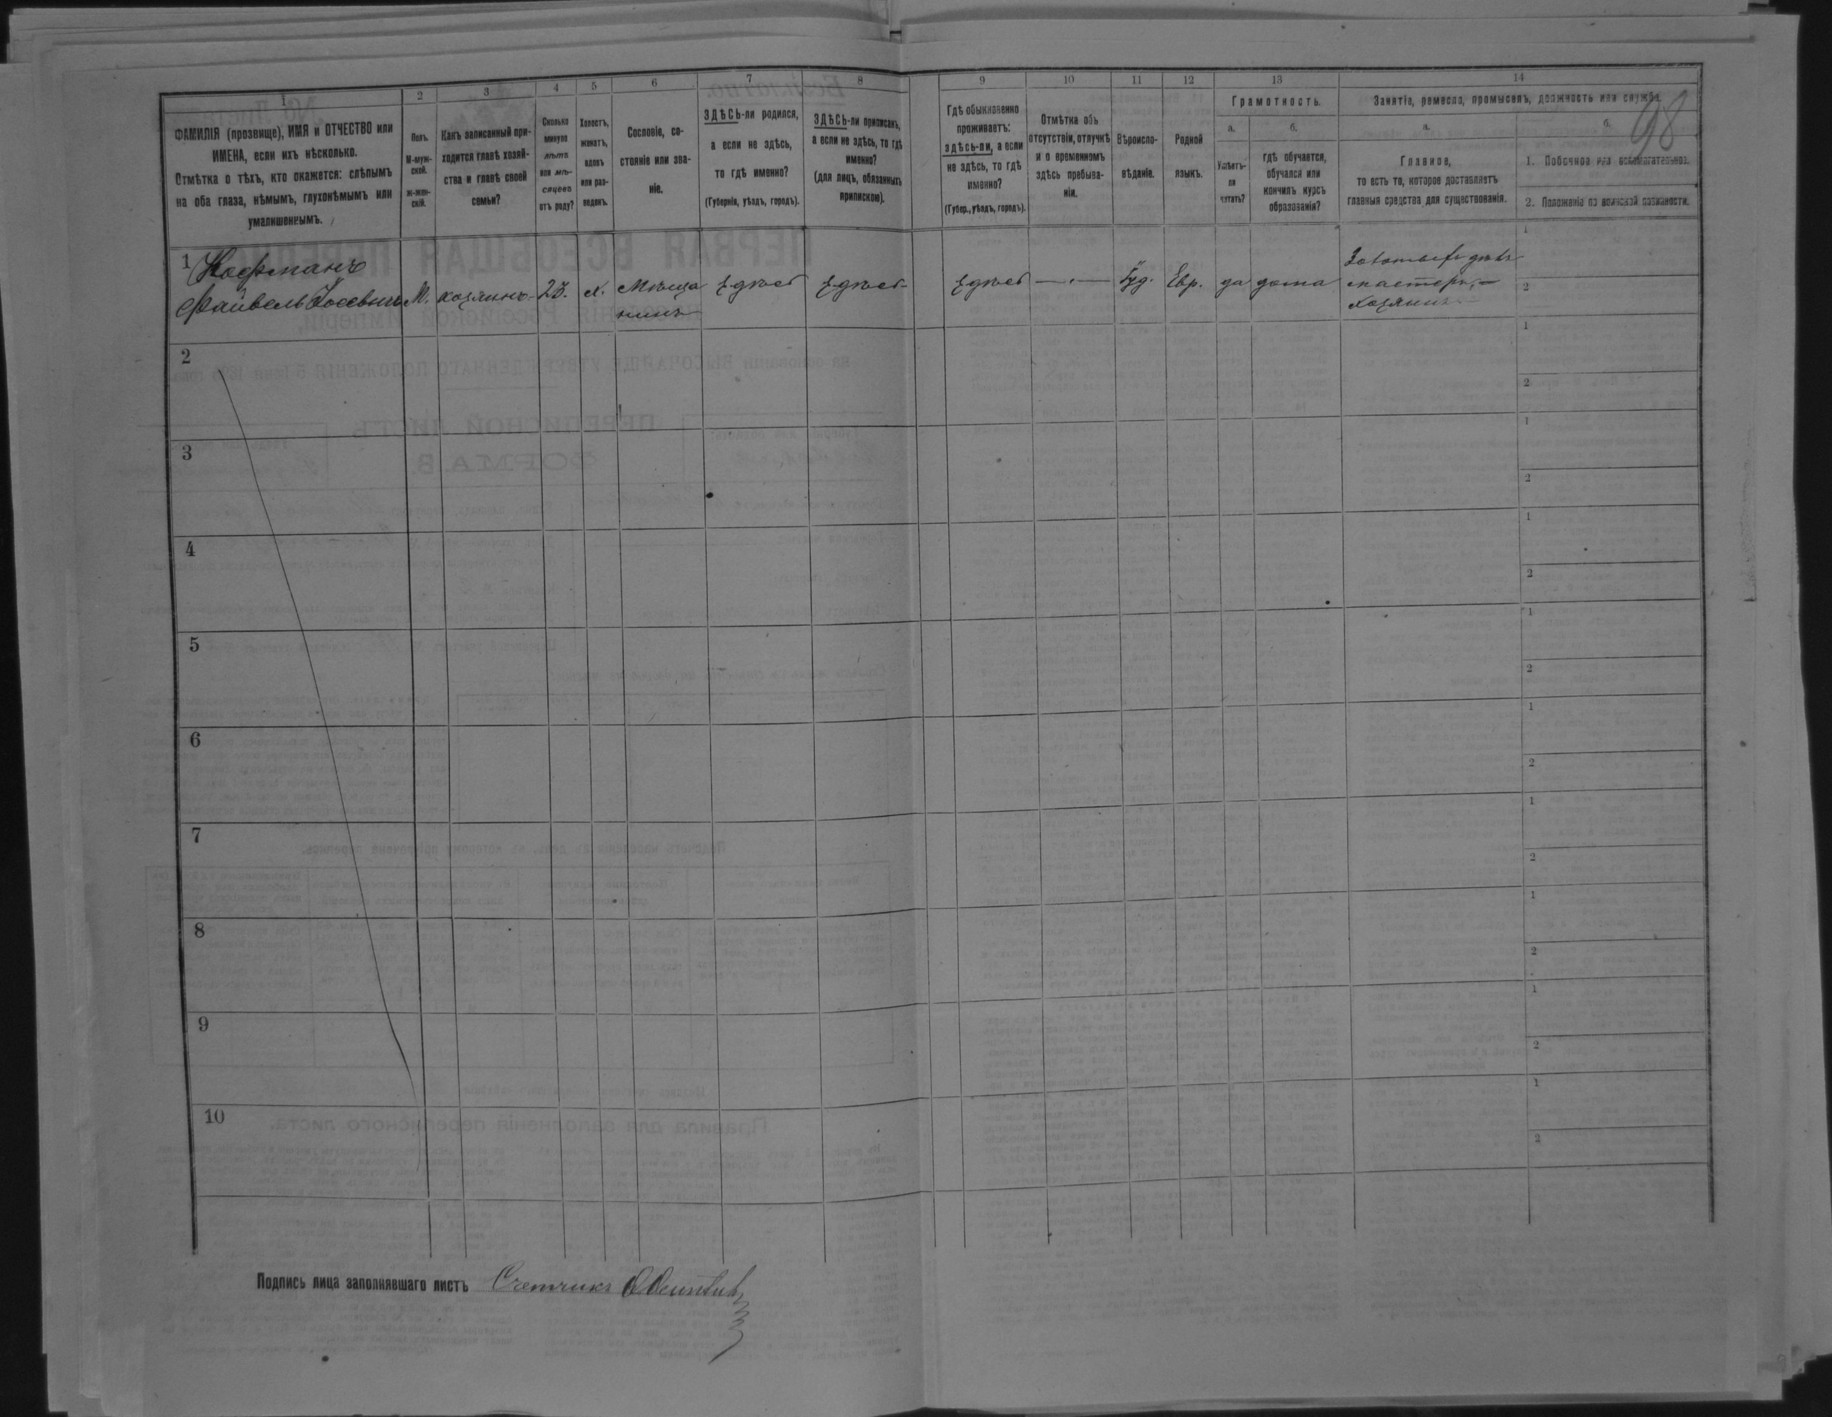 98
1
2
3
4
5
6
7
8
9
10
11
12
13
14
ФАМИЛІЯ (прозвище), ИМЯ и ОТЧЕСТВО или
ИМЕНА, если ихъ нѣсколько.
Отмѣтка о тѣхъ, кто окажется: слѣпымъ
на оба глаза, нѣмымъ, глухонѣмымъ или
умалишеннымъ.
Полъ.
М-муж-
ской.
ж-жен-
скій.
Какъ записанный при-
ходится главѣ хозяй-
ства и главѣ своей
семьи?
Сколько
минуло
лѣтъ
или мѣ-
сяцевъ
отъ роду?
Холостъ,
женатъ,
вдовъ
или раз-
веденъ.
Сословіе, со-
стояніе или зва-
ніе.
ЗДѢСЬ-ли родился,
а если не здѣсь,
то гдѣ именно?
(Губернія, уѣздъ, городъ).
ЗДѢСЬ-ли приписанъ,
а если не здѣсь, то гдѣ
именно?
(для лицъ, обязанныхъ
припискою).
Гдѣ обыкновенно
проживаетъ:
здѣсь-ли, а если
не здѣсь, то гдѣ
именно?
(Губер., уѣздъ, городъ).
Отмѣтка объ
отсутствіи, отлучкѣ
и о временномъ
здѣсь пребыва-
ніи.
Вѣроиспо-
вѣданіе.
Родной
языкъ.
Грамотность.
а.
Умѣетъ-
ли
читать?
б.
гдѣ обучается,
обучался или
кончилъ курсъ
образованія?
Занятіе, ремесло, промыселъ, должность или служба.
а.
Главное,
то есть то, которое доставляетъ
главныя средства для существованія.
б.
1. Побочное или вспомогательное.
2. Положеніе по воинской повинности.
1 Кофманъ
Файвель Іосевичъ М. хозяинъ 23. х. Мѣща
нинъ
здѣсь здѣсь здѣсь — Іуд. Евр. да дома
мастеръ,
хозяинъ
1
2
2
1
2
3
1
2
4
1
2
5
1
2
6
1
2
7
1
2
8
1
2
9
1
2
10
1
2
Подпись лица заполнявшаго листъ Счетчикъ